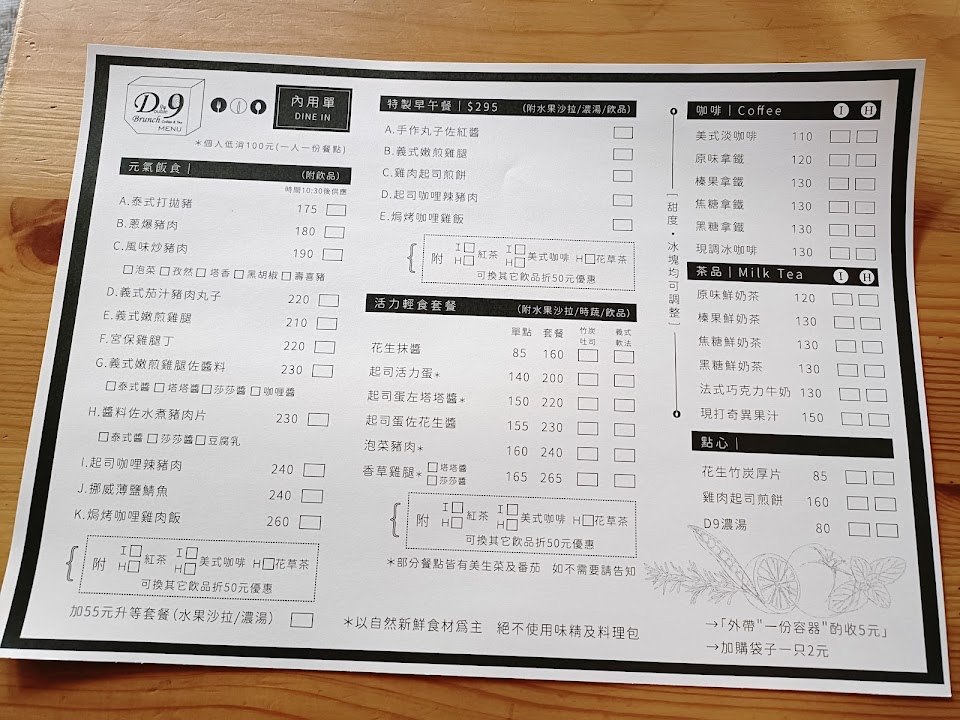 D9
Brunch Coffee & Tea
MENU
內用單
DINE IN
*個人低消100元(一人一份餐點)
元氣飯食 | (附飲品)
時間10:30後供應
A.泰式打拋豬 175
B.蔥爆豬肉 180
C.風味炒豬肉 190
泡菜 孜然 塔香 黑胡椒 壽喜豬
D.義式茄汁豬肉丸子 220
E.義式嫩煎雞腿 210
F.宮保雞腿丁 220
G.義式嫩煎雞腿佐醬料 230
泰式醬 塔塔醬 莎莎醬 咖哩醬
H.醬料佐水煮豬肉片 230
泰式醬 莎莎醬 豆腐乳
I.起司咖哩辣豬肉 240
J.挪威薄鹽鯖魚 240
K.焗烤咖哩雞肉飯 260
附 I H 紅茶 I H 美式咖啡 H 花草茶
可換其它飲品折50元優惠
加55元升等套餐(水果沙拉/濃湯)
特製早午餐 | $295 (附水果沙拉/濃湯/飲品)
A.手作丸子佐紅醬
B.義式嫩煎雞腿
C.雞肉起司煎餅
D.起司咖哩辣豬肉
E.焗烤咖哩雞飯
附 I H 紅茶 I H 美式咖啡 H 花草茶
可換其它飲品折50元優惠
活力輕食套餐 (附水果沙拉/時蔬/飲品)
單點 套餐 竹炭吐司 義式軟法
花生抹醬 85 160
起司活力蛋* 140 200
起司蛋左塔塔醬* 150 220
起司蛋佐花生醬 155 230
泡菜豬肉* 160 240
香草雞腿* 塔塔醬 莎莎醬 165 265
附 I H 紅茶 I H 美式咖啡 H 花草茶
可換其它飲品折50元優惠
*部分餐點皆有美生菜及番茄 如不需要請告知
*以自然新鮮食材為主 絕不使用味精及料理包
[甜度·冰塊均可調整]
咖啡 | Coffee I H
美式淡咖啡 110
原味拿鐵 120
榛果拿鐵 130
焦糖拿鐵 130
黑糖拿鐵 130
現調冰咖啡 130
茶品 | Milk Tea I H
原味鮮奶茶 120
榛果鮮奶茶 130
焦糖鮮奶茶 130
黑糖鮮奶茶 130
法式巧克力牛奶 130
現打奇異果汁 150
點心 |
花生竹炭厚片 85
雞肉起司煎餅 160
D9濃湯 80
→「外帶"一份容器"酌收5元」
→加購袋子一只2元